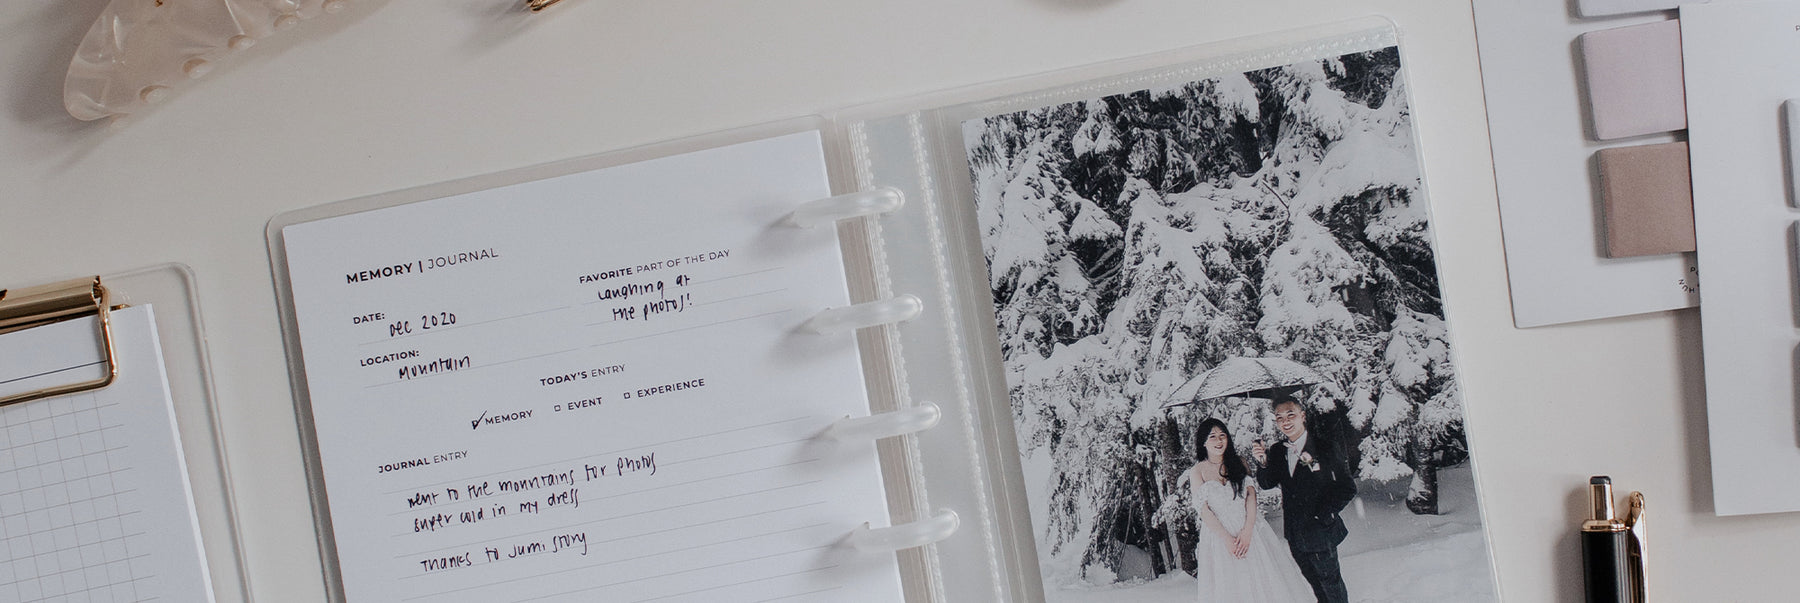 MEMORY | JOURNAL
DATE: Dec 2020
LOCATION: Mountain
FAVORITE PART OF THE DAY
Laughing at
the photos!
TODAY'S ENTRY
MEMORY EVENT EXPERIENCE
JOURNAL ENTRY
went to the mountains for photos
super cold in my dress
Thanks to Jumi Story